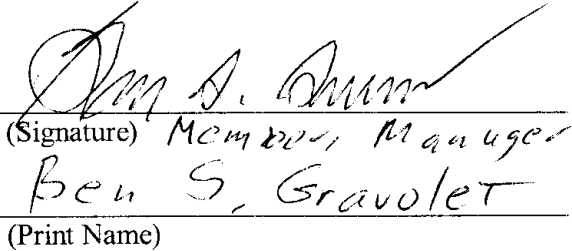 (Signature) Member, Manager
Ben S. Gravolet
(Print Name)